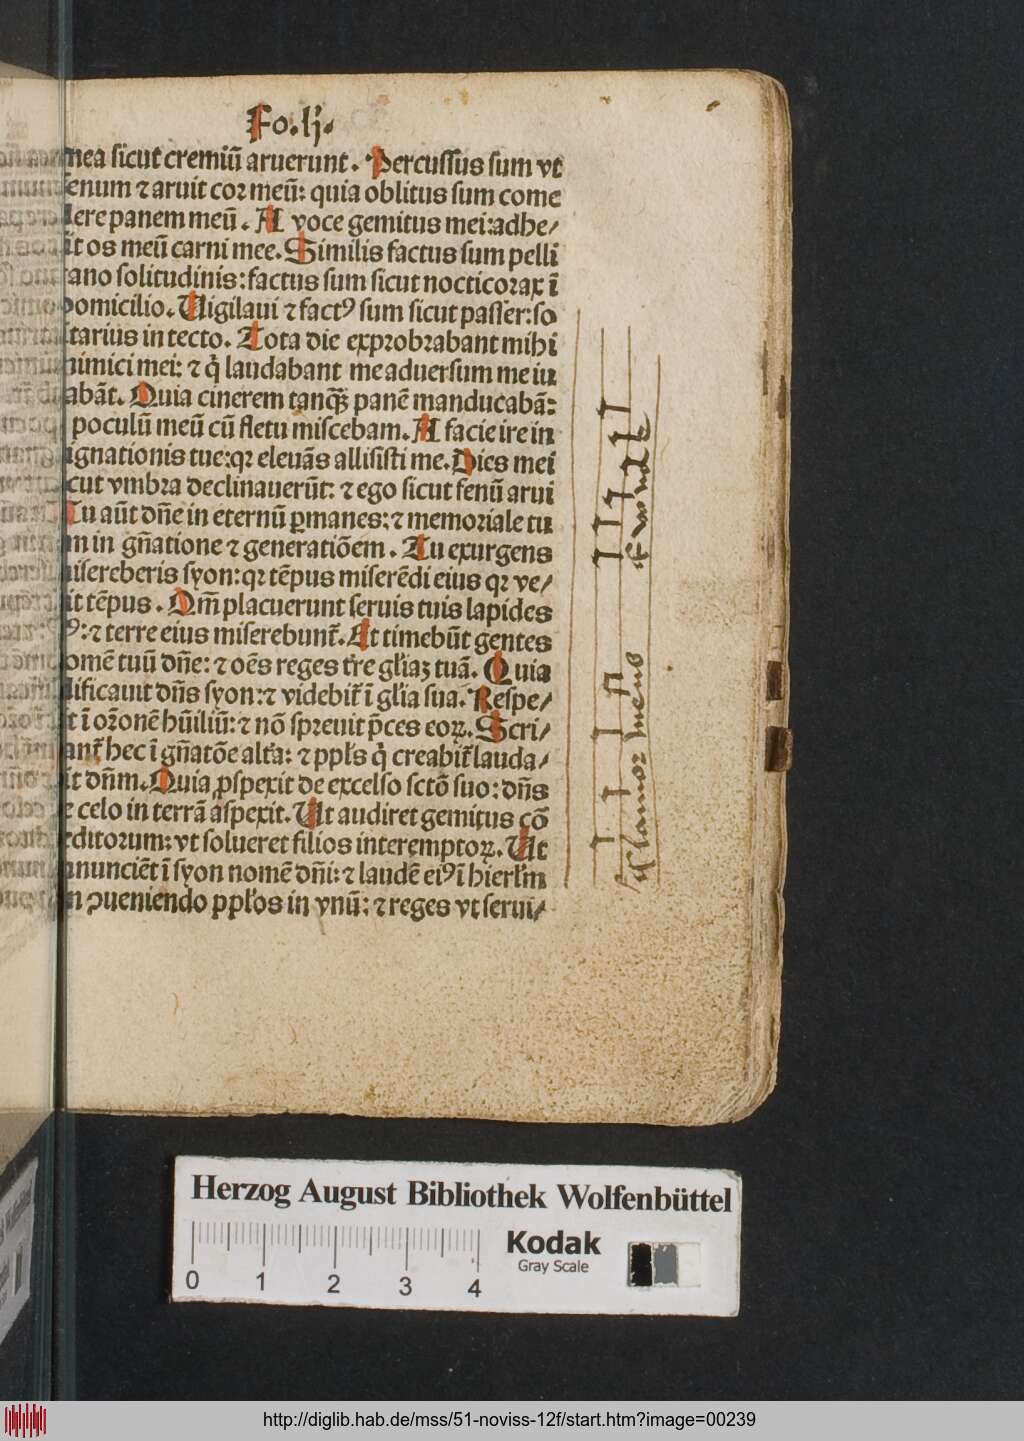 Fo.lj.
mea sicut cremiũ aruerunt. Percussus sum vt
fenum ⁊ aruit cor meũ: quia oblitus sum come
dere panem meũ. A voce gemitus mei:adhe/
sit os meũ carni mee. Similis factus sum pelli
cano solitudinis:factus sum sicut nocticorax ĩ
domicilio. Uigilaui ⁊ factꝰ sum sicut passer:so
litarius in tecto. Tota die exprobrabant mihi
inimici mei: ⁊ q̇ laudabant me aduersum me iu
rabãt. Quia cinerem tanqꝫ panẽ manducabã:
⁊ poculũ meũ cũ fletu miscebam. A facie ire in
dignationis tue:qꝛ eleuãs allisisti me. Dies mei
sicut vmbra declinauerũt: ⁊ ego sicut fenũ arui
Tu aũt dñe in eternũ ꝑmanes: ⁊ memoriale tu
um in gñatione ⁊ generatiõem. Tu exurgens
misereberis syon:qꝛ tẽpus miserẽdi eius qꝛ ve/
nit tẽpus. Qm̃ placuerunt seruis tuis lapides
eiꝰ: ⁊ terre eius miserebunt̃. Et timebũt gentes
nomẽ tuũ dñe: ⁊ oẽs reges tr̃e gl̃iaꝫ tuã. Quia
edificauit dñs syon: ⁊ videbit̃ ĩ gl̃ia sua. Respe/
xit ĩ or̃onẽ hũiliũ: ⁊ nõ spreuit p̃ces eoꝝ. Scri/
bant̃ hec ĩ gñatõe alt̃a: ⁊ ppl̃s q̇ creabit̃ lauda/
bit dñm. Quia ꝓspexit de excelso sctõ suo: dñs
de celo in terrã aspexit. Ut audiret gemitus cõ
peditorum: vt solueret filios interemptoꝝ. Ut
annunciẽt ĩ syon nomẽ dñi: ⁊ laudẽ eiꝰ ĩ hierl̃m
In ꝯueniendo ppl̃os in vnũ: ⁊ reges vt serui/
clamor meus
Herzog August Bibliothek Wolfenbüttel
Kodak
Gray Scale
0 1 2 3 4
http://diglib.hab.de/mss/51-noviss-12f/start.htm?image=00239